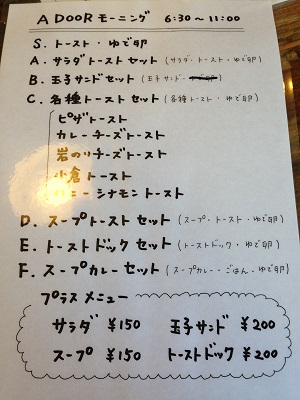 A DOOR モーニング 6:30～11:00
S. トースト・ゆで卵
A. サラダトーストセット (サラダ・トースト・ゆで卵)
B. 玉子サンドセット (玉子サンド)
C. 各種トーストセット (各種トースト・ゆで卵)
ピザトースト
カレーチーズトースト
岩のりチーズトースト
小倉トースト
ハニーシナモントースト
D. スープトーストセット (スープ・トースト・ゆで卵)
E. トーストドックセット (トーストドック・ゆで卵)
F. スープカレーセット (スープカレー・ごはん・ゆで卵)
プラスメニュー
サラダ ¥150 玉子サンド ¥200
スープ ¥150 トーストドック ¥200